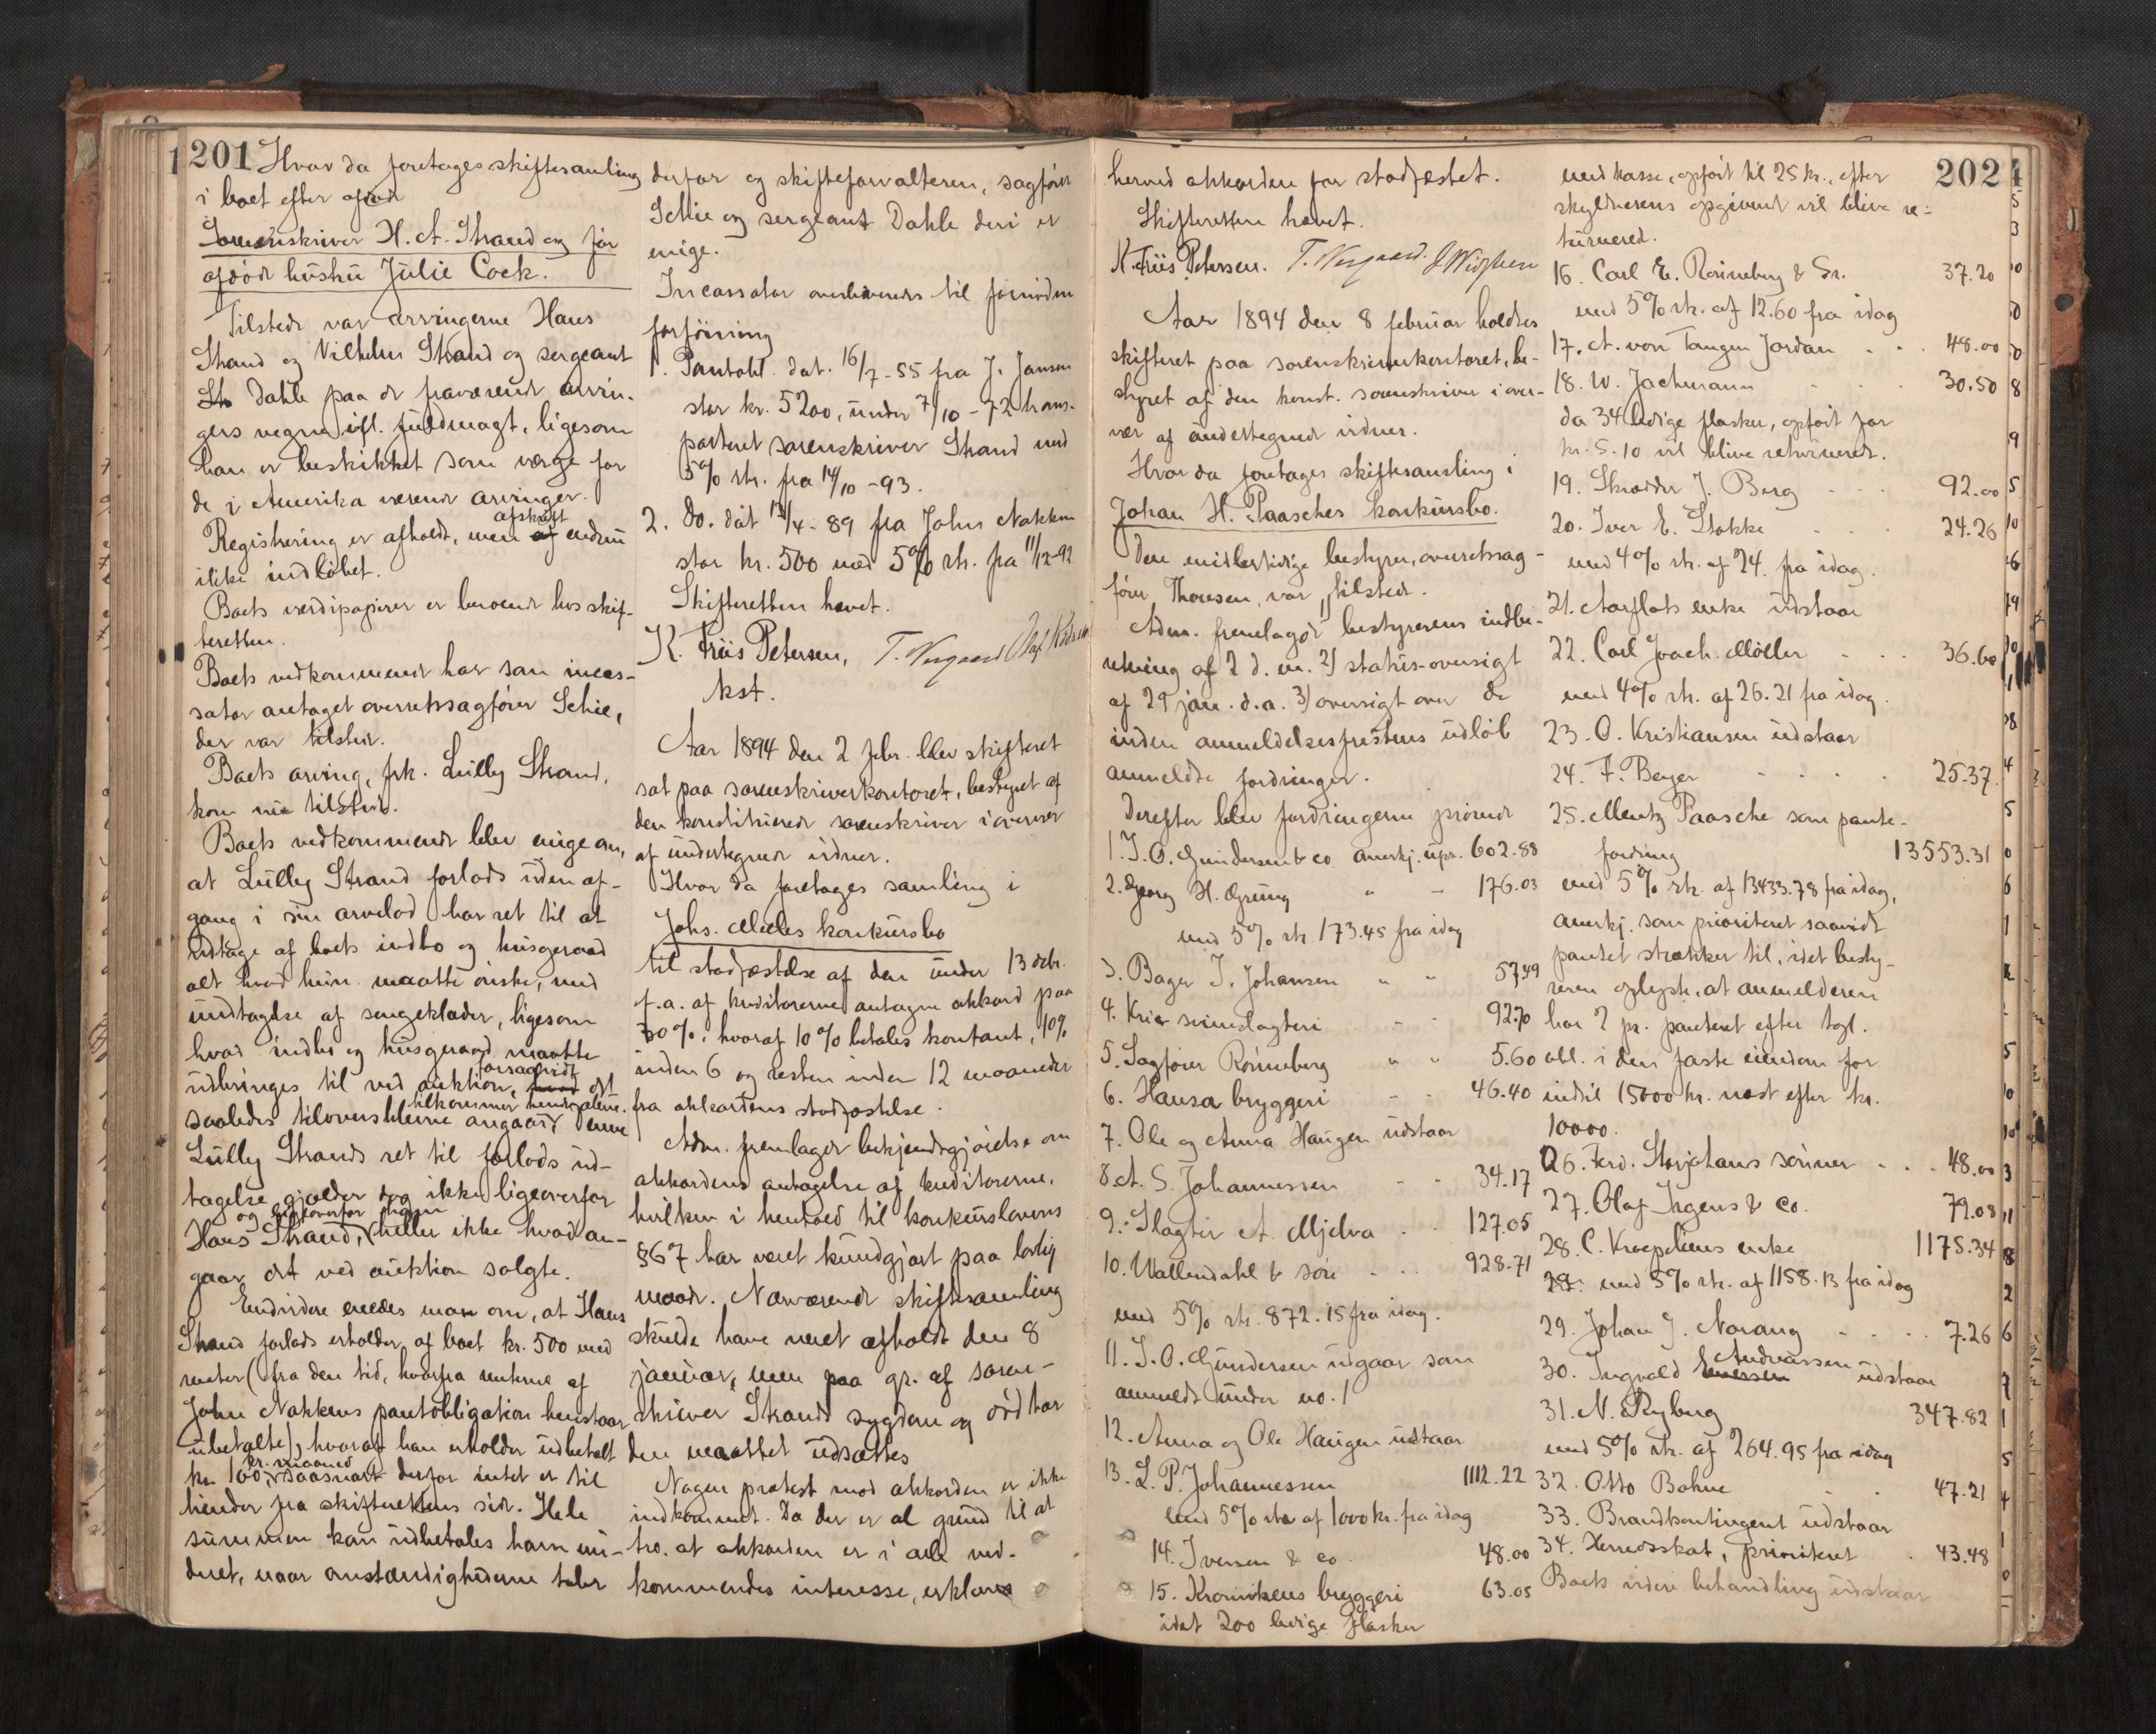 201 Hvor da foretages skiftesamling
i boet efter afdød
Sorenskriver H. A. Strand og før
afdøde hustru Julie Cock.
Tilstede var arvingerne Hans
Strand og Vilhelm Strand og sergeant
Dahle paa de fraværende arvin-
gers vegne ifl. fuldmagt, ligesom
han er beskikket som værge for
de i Amerika værende arvinger.
Registrering er afholdt, men afskrift endnu
ikke indløbet.
Boets værdipapirer er beroende hos skif-
teretten.
Boets vedkommende har som incas-
sator antaget overretssagfører Schie,
der var tilstede.
Boets arving, frk. Lully Strand,
kom nu tilstede.
Boets vedkommende blev enige om,
at Lully Strand forlods uden af-
gang i sin arvelod har ret til at
udtage af boets indbo og husgeraad
alt hvad hun maatte ønske, med
undtagelse af sengeklæder, ligesom
hvad indbo og husgeraad maatte
udbringes til ved auktion, forsaavidt det
saaledes tiloversblevne angaar, tilkommer hende alene. Denne
Lully Strands ret til forlods ud-
tagelse gjælder dog ikke ligeoverfor
Hans Strand, og ligeoverfor ham heller ikke hvad an-
gaar det ved auktion solgte.
Endvidere enedes man om, at Hans
Strand forlods erholder af boet kr. 500 med
renter (fra den tid, hvorfra renterne af
John Nakkens pantobligation henstaar
ubetalte), hvoraf han erholder udbetalt
kr. 100 pr. maaned, saasnart derfor intet er til
hinder fra skifterettens side. Hele
summen kan udbetales ham un-
deret, naar omstændighederne taler
derfor og skifteforvalteren, sagfører
Schie og sergeant Dahle deri er
enige.
Incassator overleveredes til fornøden
forføining
1. Pantobl. dat. 16/7-55 fra J. Jansen
stor kr. 5200, under 7/10-72 trans-
porteret sorenskriver Strand med
5% rte. fra 14/10-93.
2. Do. dat 13/4-89 fra John Nakken
stor kr. 500 med 5% rte. fra 11/12-92
Skifteretten hævet.
K. Friis Petersen, T. Norgaard
kst.
Aar 1894 den 2 febr. blev skifteret
sat paa sorenskriverkontoret, bestyret af
den konstituerede sorenskriver i overvær
af undertegnede vidner.
Hvor da foretages samling i
Johs. Meeles konkursbo
til stadfæstelse af den under 13 decbr.
f.a. af kreditorerne antagne akkord paa
30%, hvoraf 10% betales kontant, 10%
inden 6 og resten inden 12 maaneder
fra akkordens stadfæstelse.
Adm. fremlagde bekjendtgjørelse om
akkordens antagelse af kreditorerne,
hvilken i henhold til konkurslovens
§67 har været kundgjort paa lovlig
maade. Nærværende skiftesamling
skulde have været afholdt den 8
januar, men paa gr. af soren-
skriver Strands sygdom og død har
den maattet udsættes
Nogen protest mod akkorden er ikke
indkommet. Da der er al grund til at
tro, at akkorden er i alle ved-
kommendes interesse, erklæres
202
herved akkorden for stadfæstet.
Skifteretten hævet.
K. Friis Petersen. T. Norgaard.
Aar 1894 den 8 februar holdtes
skifteret paa sorenskriverkontoret, be-
styret af den konst. sorenskriver i over-
vær af undertegnede vidner.
Hvor da foretages skiftesamling i
Johan H. Paasches konkursbo.
Den midlertidige bestyrer, overretssag-
fører Thoresen, var tilstede.
Adm. fremlagde bestyrerens indbe-
retning af 2 d. m. 2) status-oversigt
af 29 jan. d.a. 3) oversigt over de
inden anmeldelsesfristens udløb
anmeldte fordringer.
Derefter blev fordringerne prøvede
1. J. O. Gundersen & co anerkj. upr. 602.88
2. Georg H. Grung " - 176.03
med 5% rte. 173.45 fra idag
3. Bager J. Johansen " " 57.49
4. Kria svineslagteri - - 92.70
5. Sagfører Rønneberg " " 5.60
6. Hansa bryggeri - - 46.40
7. Ole og Anna Haugen udstaar
8. A. S. Johannessen - - 34.17
9. Slagter A. Mjelva - - 127.05
10. Wallendahl & søn - - 928.71
med 5% rte. 872.15 fra idag.
11. J. O. Gundersen udgaar som
anmeldt under no. 1
12. Anna og Ole Haugen udstaar
13. L. P. Johannessen 1112.22
med 5% rte af 1000 kr. fra idag
14. Iversen & co 48.00
15. Kronvikens bryggeri 63.05
idet 200 ledige flasker
med kasse, opført til 25 kr., efter
skyldnerens opgivende vil blive re-
turnered.
16. Carl E. Rønneberg & Sr. 37.20
med 5% rte. af 12.60 fra idag
17. A. von Tangen Jordan - - - 48.00
18. W. Jachmann - - - 30.50
da 34 ledige flasker, opført for
kr. 5.10 vil blive returneret.
19. Skrædder J. Berg - - - 92.00
20. Iver E. Stokke - - - 24.26
med 4% rte. af 24. fra idag.
21. Aarflots enke udstaar
22. Carl Joach. Møller - - - 36.60
med 4% rte. af 26.21 fra idag.
23. O. Kristiansen udstaar
24. F. Beyer - - - - 25.37.
25. Mentz Paasche som pante-
fordring 13553.31
med 5% rte. af 13433.78 fra idag,
anerkj. som prioriteret saavidt
pantet strækker til, idet besty-
reren oplyste, at anmelderen
har 2 pr. panteret efter tgl.
obl. i den faste eiendom for
indtil 15000 kr. næst efter kr.
10000.
26. Ferd. Storjohans sønner - - - 48.00
27. Olaf Irgens & co. 79.08
28. C. Kroepeliens enke 1175.34
med 5% rte. af 1158.13 fra idag
29. Johan J. Norang - - - - 7.26
30. Ingvald Andreassen udstaar
31. N. Ryberg 347.82
med 5% rte. af 264.95 fra idag
32. Otto Bohne - - 47.21
33. Brandkontingent udstaar
34. Herredsskat, prioriteret - 43.48
Boets videre behandling udstaar